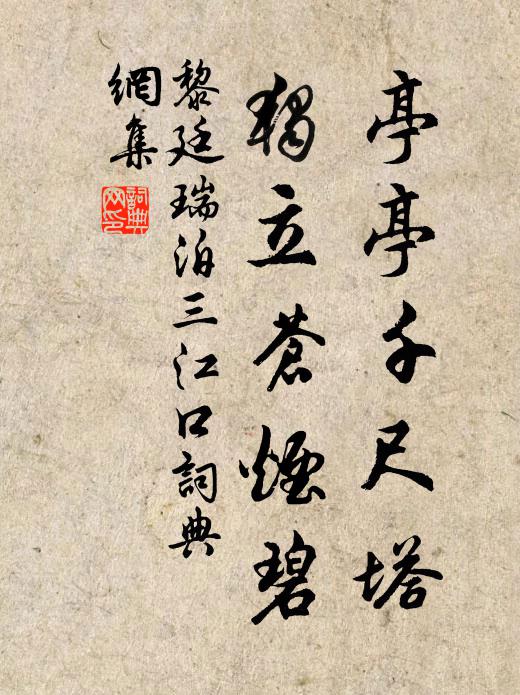 亭亭千尺塔
獨立蒼煙碧
黎廷瑞泊三江口詞典
網集
詞典
网印